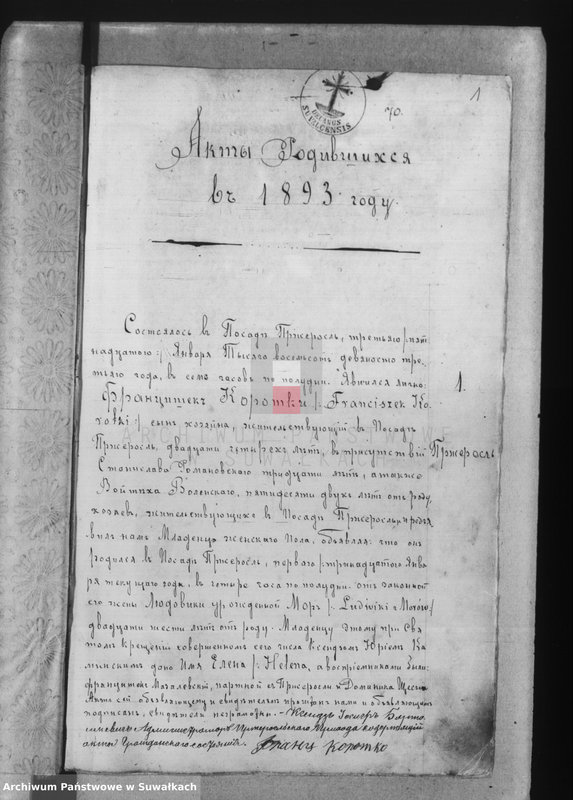 1
70.
SUVALCENSIS
Акты Родившихся
въ 1893 году.
Состоялось в Посадѣ Пржеросль, третьяго /:пят
надцатаго:/ Января Тысяча восемьсотъ девяносто тре-
тьяго года, в семь часовъ по полудни. Явился лично:
Францишекъ Коротки /:Franciszek Ko
rotki:/ сынъ хозяина, жительствующій в Посадѣ
Пржеросль, двадцати четырехъ лѣтъ, въ присутствіи
Станислава Романовскаго тридцати лѣтъ, а также
Войтѣха Воленскаго, пятидесяти двухъ лѣтъ отъ роду
хозяевъ, жительствующихъ в Посадѣ Пржеросль, и предъ
явилъ намъ Младенца женскаго Пола, объявляя: что онъ
родился в Посадѣ Пржеросль, перваго /:тринадцатаго Янва
ря текущаго года, в четыре часа по полудни отъ законной
его жены Людовики урожденной Моръ /:Ludwiki
двадцати шести лѣтъ отъ роду. Младенцу этому при Свя
томъ Крещеніи совершенномъ сего числа Ксендзомъ Юріемъ Ка
минскимъ дано Имя Елена /:Helena, а воспріемниками были:
Францишекъ в Пржеросли и Доминика
Актъ сей объявляющему и свидѣтелямъ прочитанъ нами и объявляющимъ
подписанъ, свидѣтели неграмотны. - Ксендзъ
Администраторъ Пржеросльскаго Прихода содержащій
акты Гражданскаго состоянія. Францъ Коротко
1.
Пржеросль
ARCHIWUM PAŃSTWOWE
W SUWAŁKACH
Archiwum Państwowe w Suwałkach